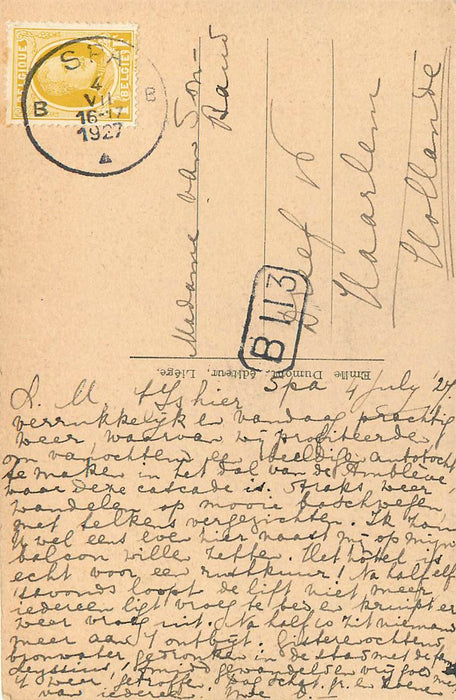 BELGIQUE
BELGIE
SPA
4
VII
16-17
1927
B
B
Madame van Son
Haarlem
Hollande
B 113
Emile Dumont, éditeur, Liége.
Spa 4 July '27.
L. M. 't Is hier
verrukkelijk en vandaag prachtig
weer, waarvan wij profiteerden
om vanochtend een beeldige autotocht
te maken in het dal van de Amblève
waar deze cascade is. Straks weer
wandelen op mooie boschwegen,
met telkens vergezichten. Ik zou
U wel eens even hier naast mij op mijn
balcon willen zetten. Het hotel is
echt voor een rustkuur! Na half elf
's avonds loopt de lift niet meer
iedereen ligt vroeg te bed en kruipt er
weer vroeg uit. Na half 10 zit niemand
meer aan 't ontbijt. Gisterenochtend
bronwater gedronken in de stad met de
gewandeld
weer getroffen. Dag
van iedereen.